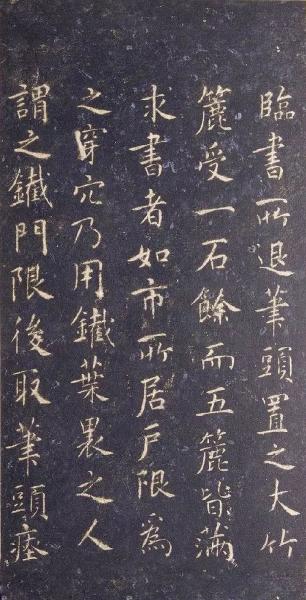 臨書所退筆頭置之大竹
簏受一石餘而五簏皆滿
求書者如市所居戶限為
之穿穴乃用鐵葉裹之人
謂之鐵門限後取筆頭瘞